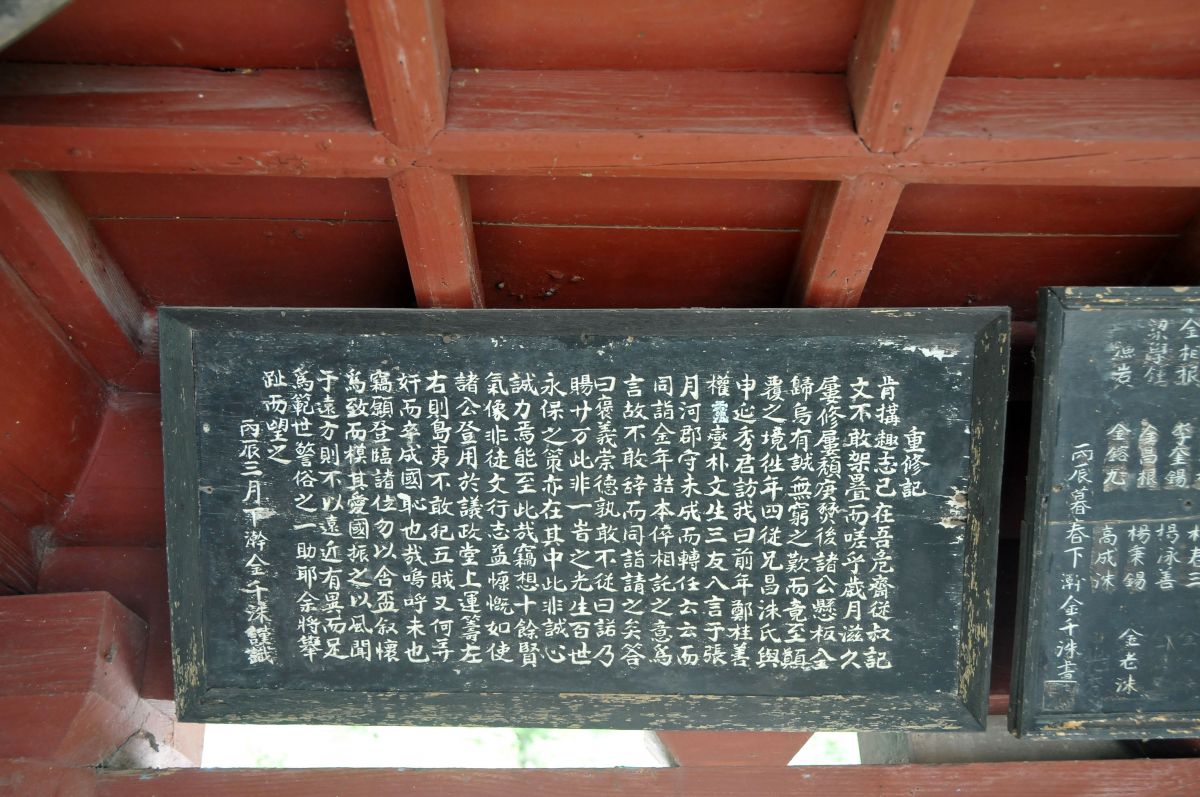 重修記
肯搆趣志已在吾危齋從叔記
文不敢架疊而嗟乎歲月滋久
屢修屢頹庚癸後諸公懸板全
歸烏有誠無窮之歎而竟至顚
覆之境往年四從兄昌洙氏與
申延秀君訪我曰前年鄭桂善
權變朴文生三友入言于張
月河郡守未成而轉任云云而
同詣金年喆本倅相託之意爲
言故不敢辞而同詣請之矣答
曰褒義崇德孰敢不從曰諾乃
賜廿万此非一岩之光生百世
永保之策亦在其中此非誠心
誠力焉能至此哉竊想十餘賢
氣像非徒文行志益慷慨如使
諸公登用於議政堂上運籌左
右則島夷不敢犯五賊又何弄
奸而卒成國恥也哉嗚呼未也
竊願登臨諸位勿以含盃叙懷
爲致而模其愛國振之以風聞
于遠方則不以遠近有異而足
爲範世警俗之一助耶余將擧
趾而望之
丙辰三月下澣金千洙謹識
金相根
梁學錘
漁岩
李奎錫
金昌根
金容九
楊泳善
楊秉錫
高成洙
金老洙
丙辰暮春下澣金千洙書